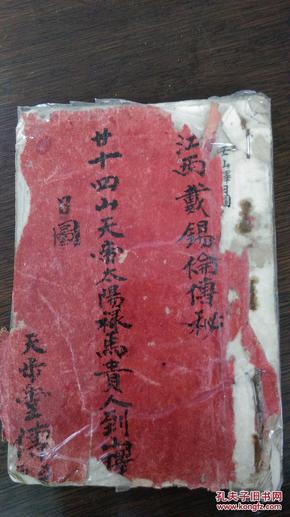 江西戴錫倫傳秘
廿十四山天帝太陽祿馬貴人到山擇
日圖
天帝堂傳
山擇日圖
孔夫子旧书网